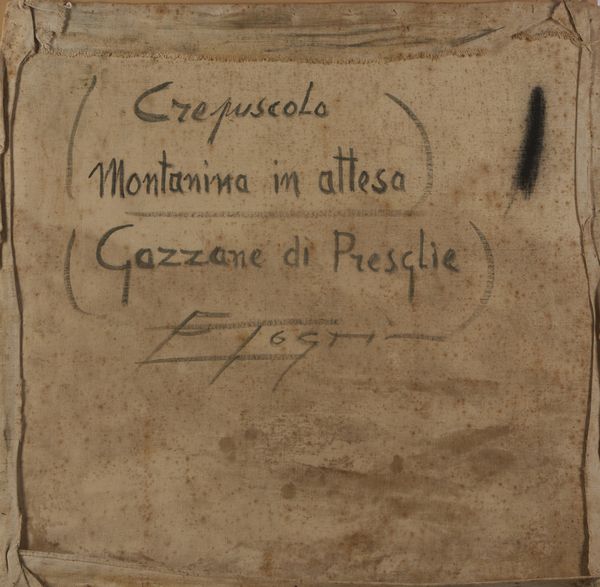 (Crepuscolo
Montanina in attesa)
(Gazzane di Preseglie)